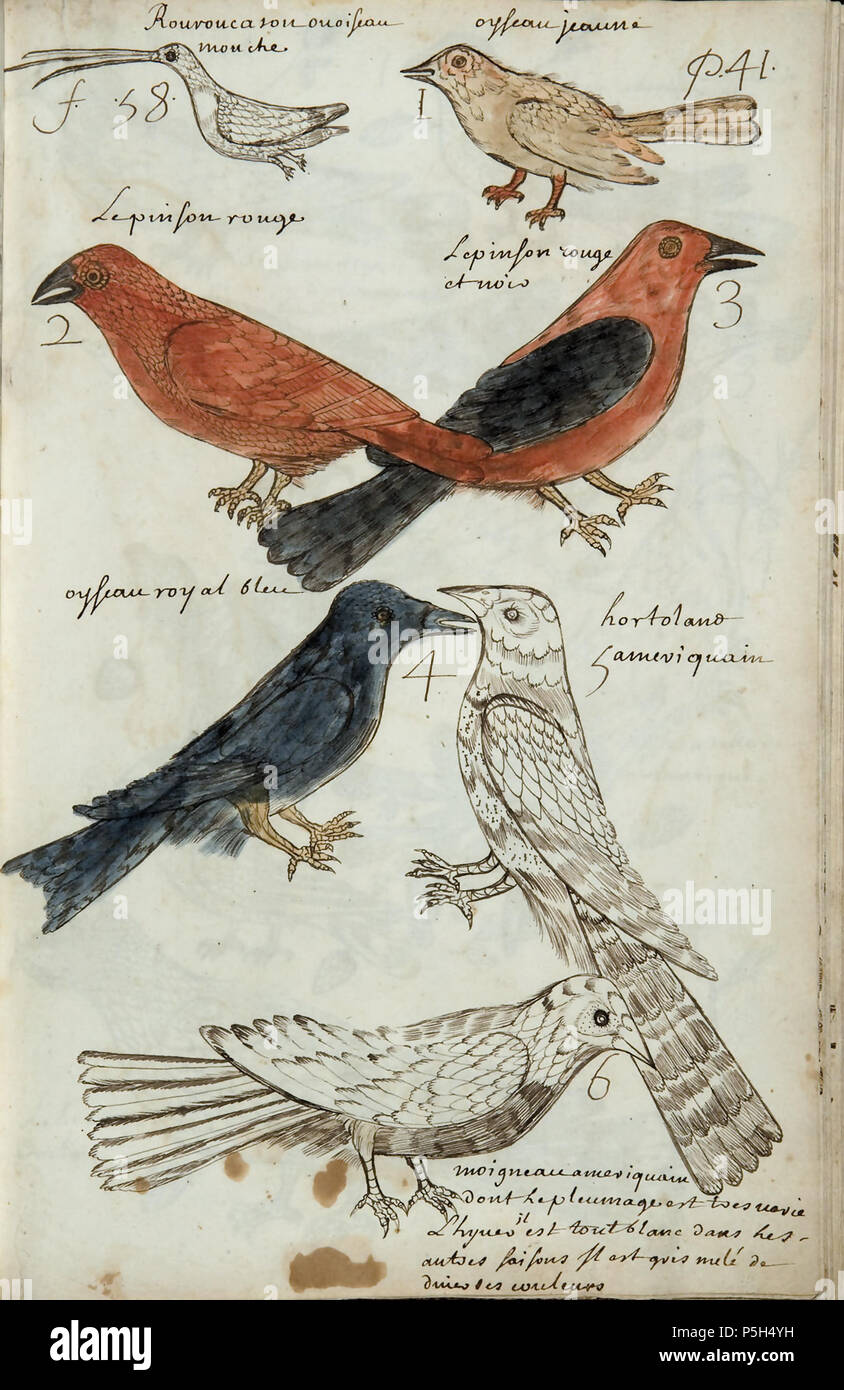 Rouroucasou ou oiseau
mouche
oysseau jeaune
f. 58.
1
P.41.
Lepinson rouge
2
Lepinson rouge
et noir
3
oysseau royal bleu
4
hortoland
5 ameriquain
6
moigneau ameriquain
dont le pleumage est tres varie
Lhyver il est tout blanc dans les
autres saisons Il est gris melé de
diverses couleurs
alamy
alamy
Image ID: P5H4YH
www.alamy.com